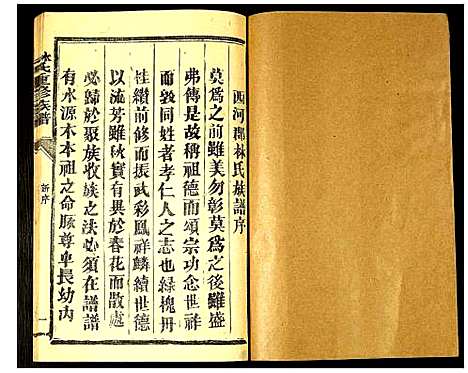 西河郡林氏族譜序
莫爲之前雖美勿彰莫爲之後雖盛
弗傳是故稱祖德而頌宗功念世祥
而毀同姓者孝仁人之志也緑槐丹
桂纘前修而振武彩鳳祥麟續世德
以流芳雖秋實有異於春花而散處
必歸於聚族收族之法必須在譜譜
有水源木本祖之命脉尊卑長幼内
林氏重修族譜
新序
一